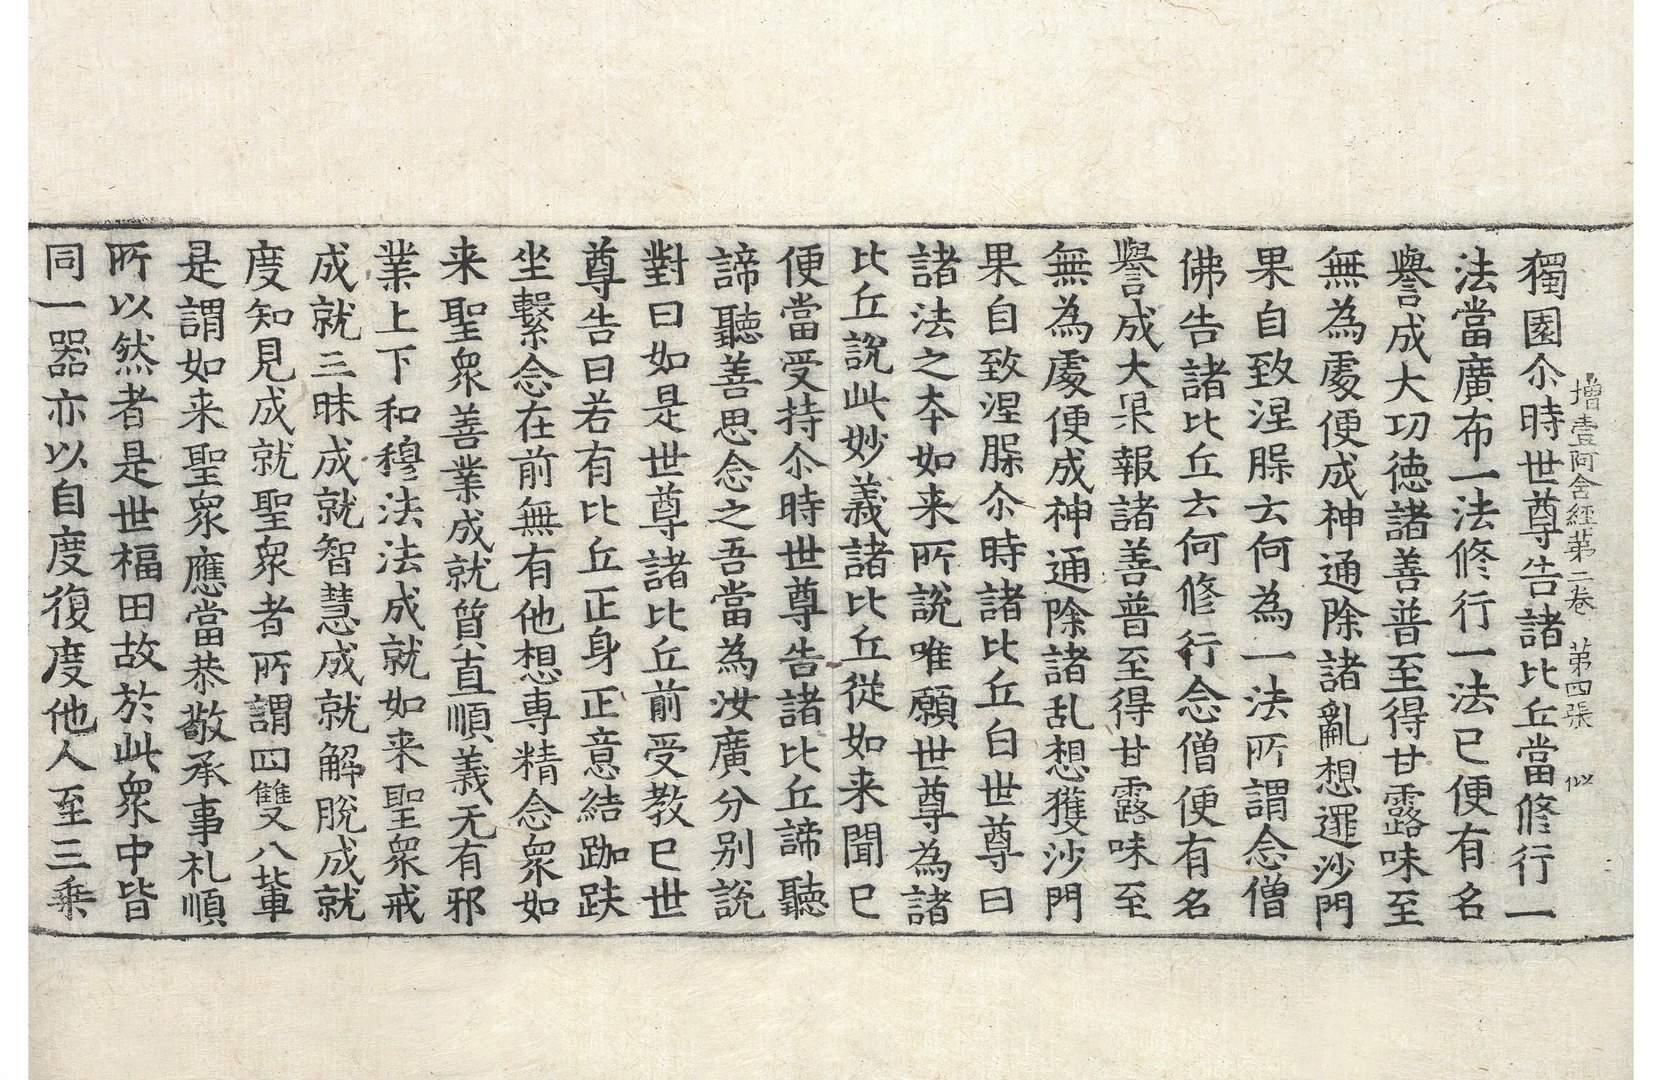 增壹阿含經第二卷　第四張　似
獨園尒時世尊告諸比丘當修行一
法當廣布一法修行一法已便有名
譽成大功德諸善普至得甘露味至
無為處便成神通除諸亂想逮沙門
果自致涅脲云何為一法所謂念僧
佛告諸比丘云何修行念僧便有名
譽成大果報諸善普至得甘露味至
無為處便成神通除諸乱想獲沙門
果自致涅脲尒時諸比丘白世尊曰
諸法之夲如来所說唯願世尊為諸
比丘說此妙義諸比丘從如来聞已
便當受持尒時世尊告諸比丘諦聽
諦聽善思念之吾當為汝廣分别說
對曰如是世尊諸比丘前受教已世
尊告曰若有比丘正身正意結跏趺
坐繫念在前無有他想專精念衆如
来聖衆善業成就質直順義无有邪
業上下和穆法法成就如来聖衆戒
成就三昧成就智慧成就解脫成就
度知見成就聖衆者所謂四雙八軰
是謂如来聖衆應當恭敬承事礼順
所以然者是世福田故於此衆中皆
同一器亦以自度復度他人至三乘